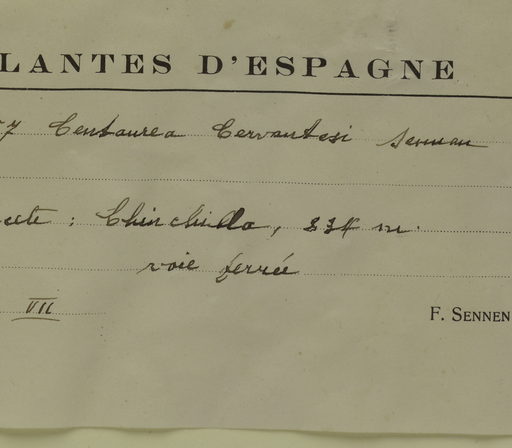 LANTES D'ESPAGNE
7 Centaurea Cervantesi Sennen
cete : Chinchilla, 834 m.
voie ferrée
VII
F. SENNEN